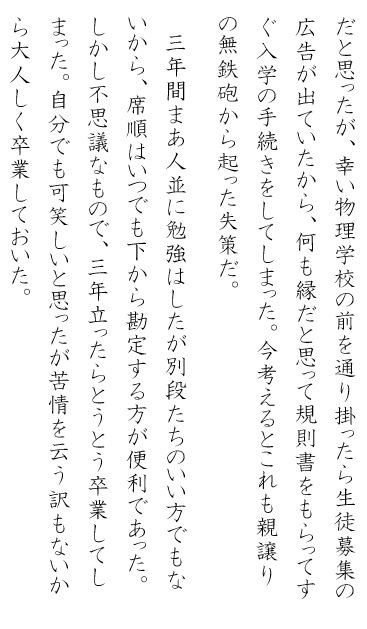 だと思ったが、幸い物理学校の前を通り掛ったら生徒募集の
広告が出ていたから、何も縁だと思って規則書をもらってす
ぐ入学の手続きをしてしまった。今考えるとこれも親譲り
の無鉄砲から起った失策だ。
三年間まあ人並に勉強はしたが別段たちのいい方でもな
いから、席順はいつでも下から勘定する方が便利であった。
しかし不思議なもので、三年立ったらとうとう卒業してし
まった。自分でも可笑しいと思ったが苦情を云う訳もないか
ら大人しく卒業しておいた。